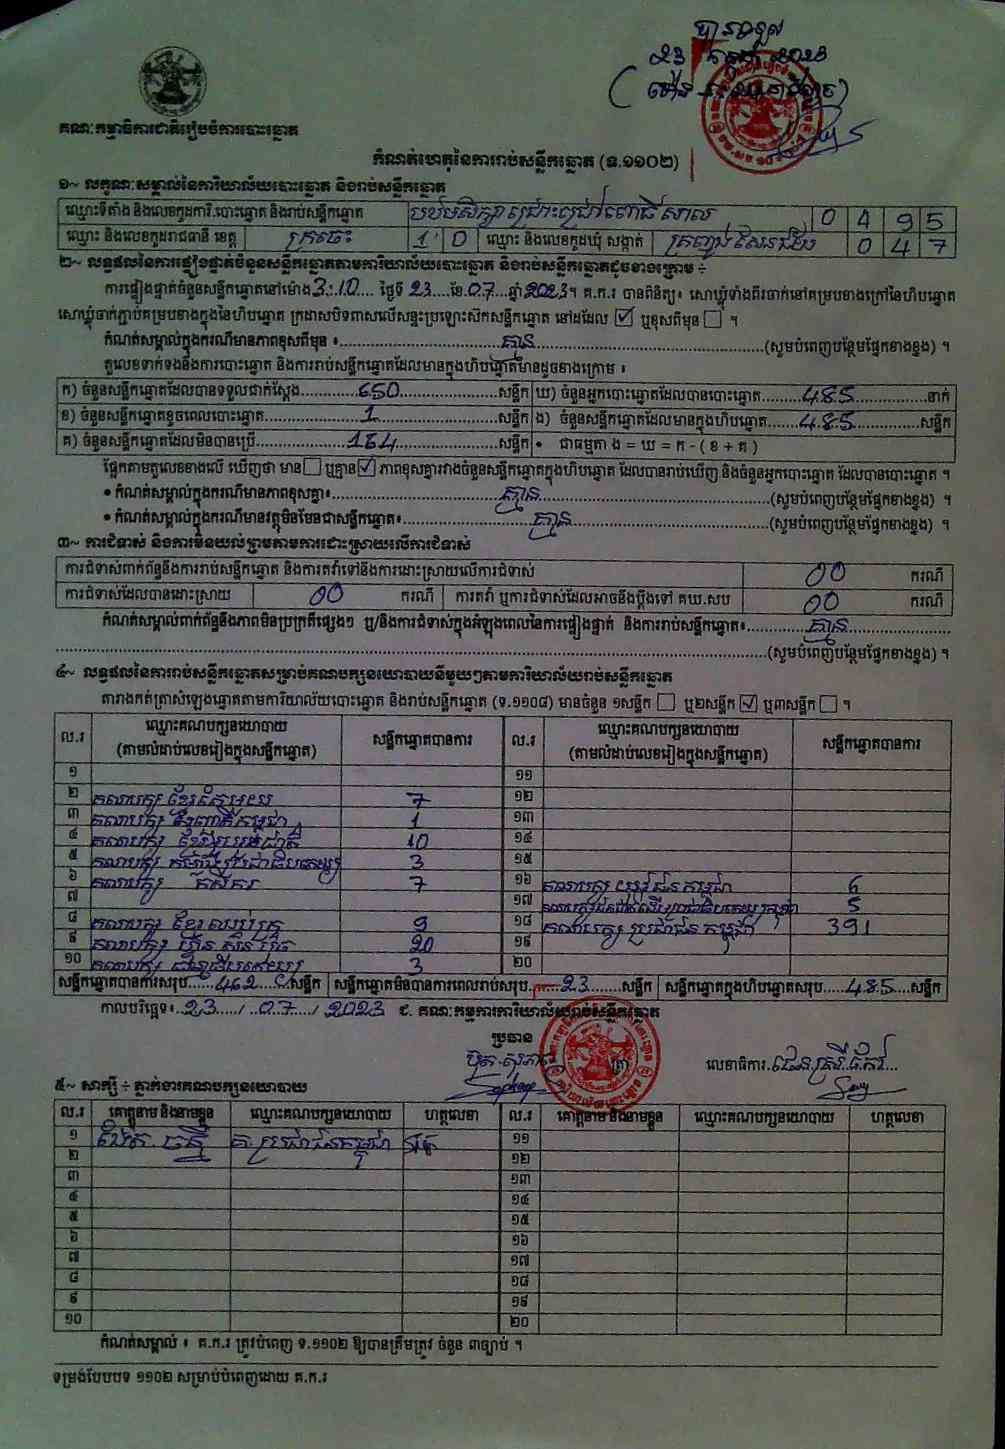 បានឃើញ
២៣ កក្កដា ២០២៣
គណៈកម្មាធិការជាតិរៀបចំការបោះឆ្នោត
កំណត់ហេតុនៃការរាប់សន្លឹកឆ្នោត (ទ.១១០២)
១~ លក្ខណៈសម្គាល់នៃការិយាល័យបោះឆ្នោត និងរាប់សន្លឹកឆ្នោត
ឈ្មោះទីតាំង និងលេខកូដការិ.បោះឆ្នោត និងរាប់សន្លឹកឆ្នោត 0 4 9 5
ឈ្មោះ និងលេខកូដរាជធានី ខេត្ត ក្រចេះ 1 0 ឈ្មោះ និងលេខកូដឃុំ សង្កាត់ 0 4 7
២~ លទ្ធផលនៃការផ្ទៀងផ្ទាត់ចំនួនសន្លឹកឆ្នោតតាមការិយាល័យបោះឆ្នោត និងរាប់សន្លឹកឆ្នោតដូចខាងក្រោម ÷
ការផ្ទៀងផ្ទាត់ចំនួនសន្លឹកឆ្នោតនៅម៉ោង 3:10 ថ្ងៃទី 23 ខែ 07 ឆ្នាំ 2023។ គ.ក.រ បានពិនិត្យ៖ សោឃ្លុំទាំងពីរចាក់នៅគម្របខាងក្រៅនៃហិបឆ្នោត
សោឃ្លុំចាក់ភ្ជាប់គម្របខាងក្នុងនៃហិបឆ្នោត ក្រដាសបិទពាសលើសន្ទះប្រឡោះស៊កសន្លឹកឆ្នោត នៅដដែល ☑ ឬខុសពីមុន ☐ ។
កំណត់សម្គាល់ក្នុងករណីមានភាពខុសពីមុន ៖ គ្មាន (សូមបំពេញបន្ថែមផ្នែកខាងខ្នង) ។
តួលេខទាក់ទងនឹងការបោះឆ្នោត និងការរាប់សន្លឹកឆ្នោតដែលមានក្នុងហិបឆ្នោតមានដូចខាងក្រោម ៖
ក) ចំនួនសន្លឹកឆ្នោតដែលបានទទួលជាក់ស្តែង 650 សន្លឹក ឃ) ចំនួនអ្នកបោះឆ្នោតដែលបានបោះឆ្នោត 485 នាក់
ខ) ចំនួនសន្លឹកឆ្នោតខូចពេលបោះឆ្នោត 1 សន្លឹក ង) ចំនួនសន្លឹកឆ្នោតដែលមានក្នុងហិបឆ្នោត 485 សន្លឹក
គ) ចំនួនសន្លឹកឆ្នោតដែលមិនបានប្រើ 164 សន្លឹក • ជាធម្មតា ង = ឃ = ក - ( ខ + គ )
ផ្អែកតាមតួលេខខាងលើ ឃើញថា មាន ☐ ឬគ្មាន ☑ ភាពខុសគ្នារវាងចំនួនសន្លឹកឆ្នោតក្នុងហិបឆ្នោត ដែលបានរាប់ឃើញ និងចំនួនអ្នកបោះឆ្នោត ដែលបានបោះឆ្នោត ។
• កំណត់សម្គាល់ក្នុងករណីមានភាពខុសគ្នា៖ គ្មាន (សូមបំពេញបន្ថែមផ្នែកខាងខ្នង) ។
• កំណត់សម្គាល់ក្នុងករណីមានវត្ថុមិនមែនជាសន្លឹកឆ្នោត៖ គ្មាន (សូមបំពេញបន្ថែមផ្នែកខាងខ្នង) ។
៣~ ការជំទាស់ និងការមិនយល់ព្រមតាមការដោះស្រាយលើការជំទាស់
ការជំទាស់ពាក់ព័ន្ធនឹងការរាប់សន្លឹកឆ្នោត និងការតវ៉ាទៅនឹងការដោះស្រាយលើការជំទាស់ 00 ករណី
ការជំទាស់ដែលបានដោះស្រាយ 00 ករណី ការតវ៉ា ឬការជំទាស់ដែលអាចនឹងប្តឹងទៅ គឃ.សប 00 ករណី
កំណត់សម្គាល់ពាក់ព័ន្ធនឹងភាពមិនប្រក្រតីផ្សេងៗ ឬ/និងការជំទាស់ក្នុងអំឡុងពេលនៃការផ្ទៀងផ្ទាត់ និងការរាប់សន្លឹកឆ្នោត៖ គ្មាន
(សូមបំពេញបន្ថែមផ្នែកខាងខ្នង) ។
៤~ លទ្ធផលនៃការរាប់សន្លឹកឆ្នោតសម្រាប់គណបក្សនយោបាយនីមួយៗតាមការិយាល័យរាប់សន្លឹកឆ្នោត
តារាងកត់ត្រាសំឡេងឆ្នោតតាមការិយាល័យបោះឆ្នោត និងរាប់សន្លឹកឆ្នោត (ទ.១១០៨) មានចំនួន ១សន្លឹក ☐ ឬ២សន្លឹក ☑ ឬ៣សន្លឹក ☐ ។
ល.រ ឈ្មោះគណបក្សនយោបាយ (តាមលំដាប់លេខរៀងក្នុងសន្លឹកឆ្នោត) សន្លឹកឆ្នោតបានការ ល.រ ឈ្មោះគណបក្សនយោបាយ (តាមលំដាប់លេខរៀងក្នុងសន្លឹកឆ្នោត) សន្លឹកឆ្នោតបានការ
១ ១១
២ គណបក្ស ខ្មែររួបរួម 7 ១២
៣ គណបក្ស កម្ពុជា 1 ១៣
៤ គណបក្ស ខ្មែរ ជាតិ 10 ១៤
៥ គណបក្ស ប្រជាធិបតេយ្យ 3 ១៥
៦ គណបក្ស កសិករ 7 ១៦ គណបក្ស យុវជន កម្ពុជា 6
៧ ១៧ គណបក្ស 5
៨ គណបក្ស ខ្មែរ 9 ១៨ គណបក្ស ប្រជាជន កម្ពុជា 391
៩ គណបក្ស ហ៊្វុនស៊ិនប៉ិច 20 ១៩
១០ គណបក្ស 3 ២០
សន្លឹកឆ្នោតបានការសរុប 462 សន្លឹក សន្លឹកឆ្នោតមិនបានការពេលរាប់សរុប 23 សន្លឹក សន្លឹកឆ្នោតក្នុងហិបឆ្នោតសរុប 485 សន្លឹក
កាលបរិច្ឆេទ៖ 23 / 07 / 2023 ជ. គណៈកម្មការការិយាល័យរាប់សន្លឹកឆ្នោត
ប្រធាន
លេខាធិការ
៥~ សាក្សី ÷ ភ្នាក់ងារគណបក្សនយោបាយ
ល.រ គោត្តនាម និងនាមខ្លួន ឈ្មោះគណបក្សនយោបាយ ហត្ថលេខា ល.រ គោត្តនាម និងនាមខ្លួន ឈ្មោះគណបក្សនយោបាយ ហត្ថលេខា
១ គ.ប្រជាជនកម្ពុជា ១១
២ ១២
៣ ១៣
៤ ១៤
៥ ១៥
៦ ១៦
៧ ១៧
៨ ១៨
៩ ១៩
១០ ២០
កំណត់សម្គាល់ ៖ គ.ក.រ ត្រូវបំពេញ ទ.១១០២ ឱ្យបានត្រឹមត្រូវ ចំនួន ៣ច្បាប់ ។
ទម្រង់បែបបទ ១១០២ សម្រាប់បំពេញដោយ គ.ក.រ